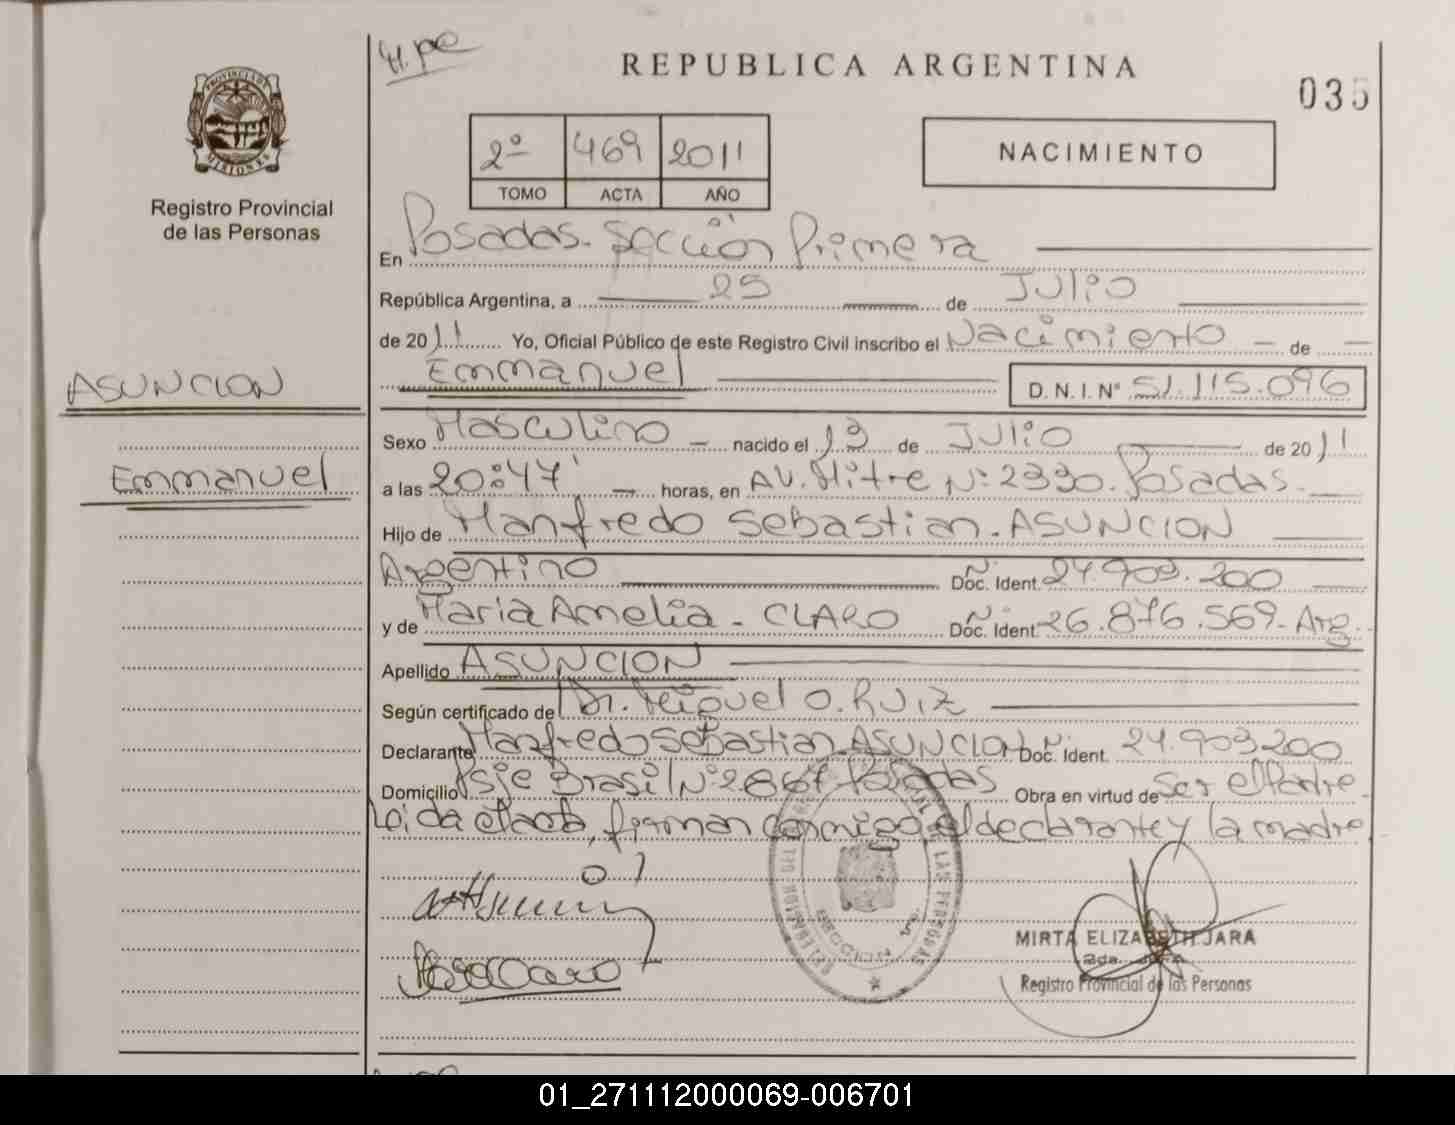 H. pe
REPUBLICA ARGENTINA
035
PROVINCIA DE MISIONES
Registro Provincial
de las Personas
2º 469 2011
TOMO ACTA AÑO
NACIMIENTO
En Posadas. Sección Primera
República Argentina, a 25 de Julio
de 2011 Yo, Oficial Público de este Registro Civil inscribo el Nacimiento de
Emmanuel D. N. I. Nº 51.115.096
ASUNCION
Emmanuel
Sexo Masculino nacido el 13 de Julio de 2011
a las 20:47 horas, en AV. Mitre Nº 2330. Posadas.
Hijo de Manfredo Sebastian. ASUNCION
Argentino Nº Doc. Ident. 24.903.200
y de Maria Amelia - CLARO Nº Doc. Ident. 26.876.569- Arg.
Apellido ASUNCION
Según certificado del Dr. Miguel O. Ruiz
Declarante Manfredo Sebastian ASUNCION Nº Doc. Ident. 24.903.200
Domicilio Psje Brasil Nº 2867 Posadas Obra en virtud de Ser el Padre
Leida el acta, firman conmigo el declarante y la madre
MIRTA ELIZABETH JARA
Registro Provincial de las Personas
01_271112000069-006701